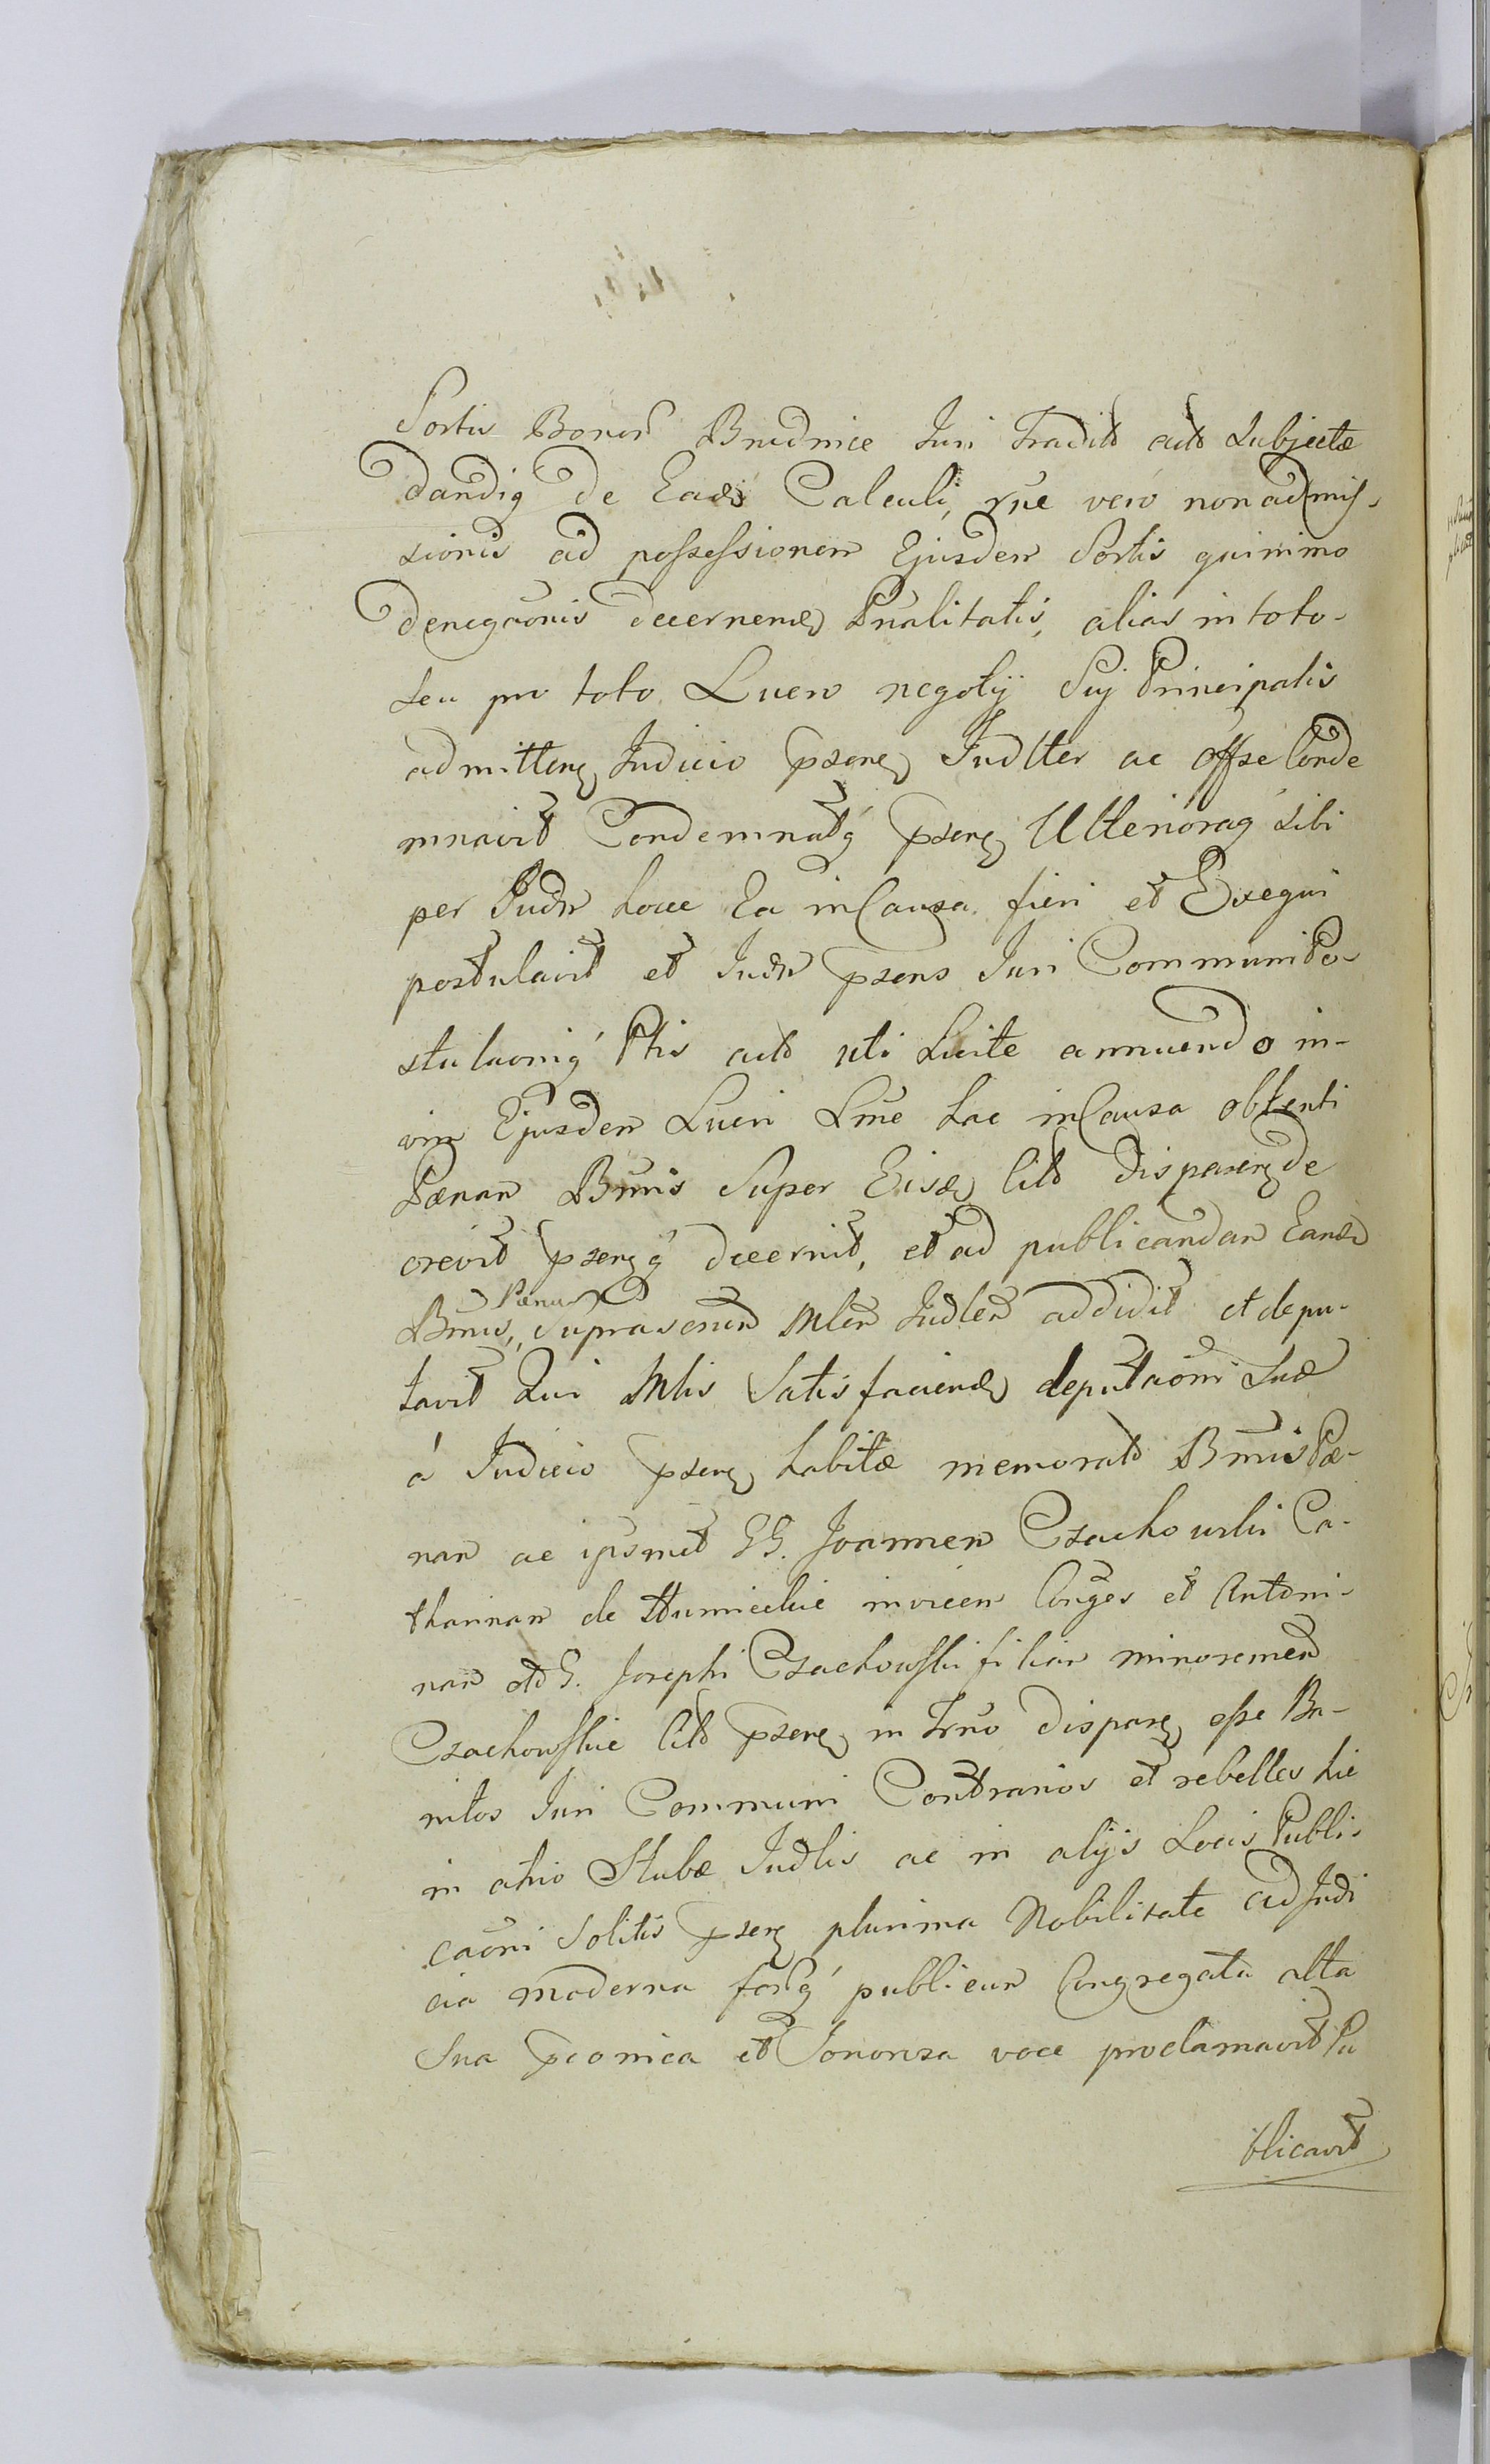 Sortis Bonor Brudnice Iuri Tradit act Subjectæ
dandiq De Eads Calculi, rne vero non admis-
sionis ad possessionem Ejusdem Sortis quinimo
denegaonis decernend Pnalitatis, alias in toto
seu pro toto Lucro negotij Sui Principalis
admitten Judicio psenq Judlter ac offse Conde
mnavit Condemnatq psenq Ulterioraq sibi
per Judm hocce Ea in Causa fieri et Exequi
postulavit et Judm psens Iuri Communi Po-
stulaoniq Ptis act uti Licite annuendo in-
vim Ejusdem Lucri Lme hac in Causa obtenti
Pænam Bnnis Super Eisd Citt disparend de
crevit psenq decernit, et ad publicandam Eand
Bnnis, Pænam suprascrien Mlem Judlem addidit et depu-
tavit Qui Mlis Satisfaciend deputaoni Suæ
á Judicio psenq habitæ memorat Bnnis Pæ-
nam ac ipsmet GG. Joannem Czachowski Ca-
tharinam de Humieckie invicem Conges et Antoni-
nam olt G. Josephi Czachowski filiam minorenem
Czachowskie Citt psenq in Trno disparen esse Ba-
nitos Iuri Communi Contrarios et rebelles hic
in atrio Stubæ Judlis ac in alijs Locis Publi-
caoni Solitis psenq plurima Nobilitate ad Judi
cia moderna forq publicum Congregata alta
Sua pconica et Sonorosa voce proclamavit Pu
blicavit